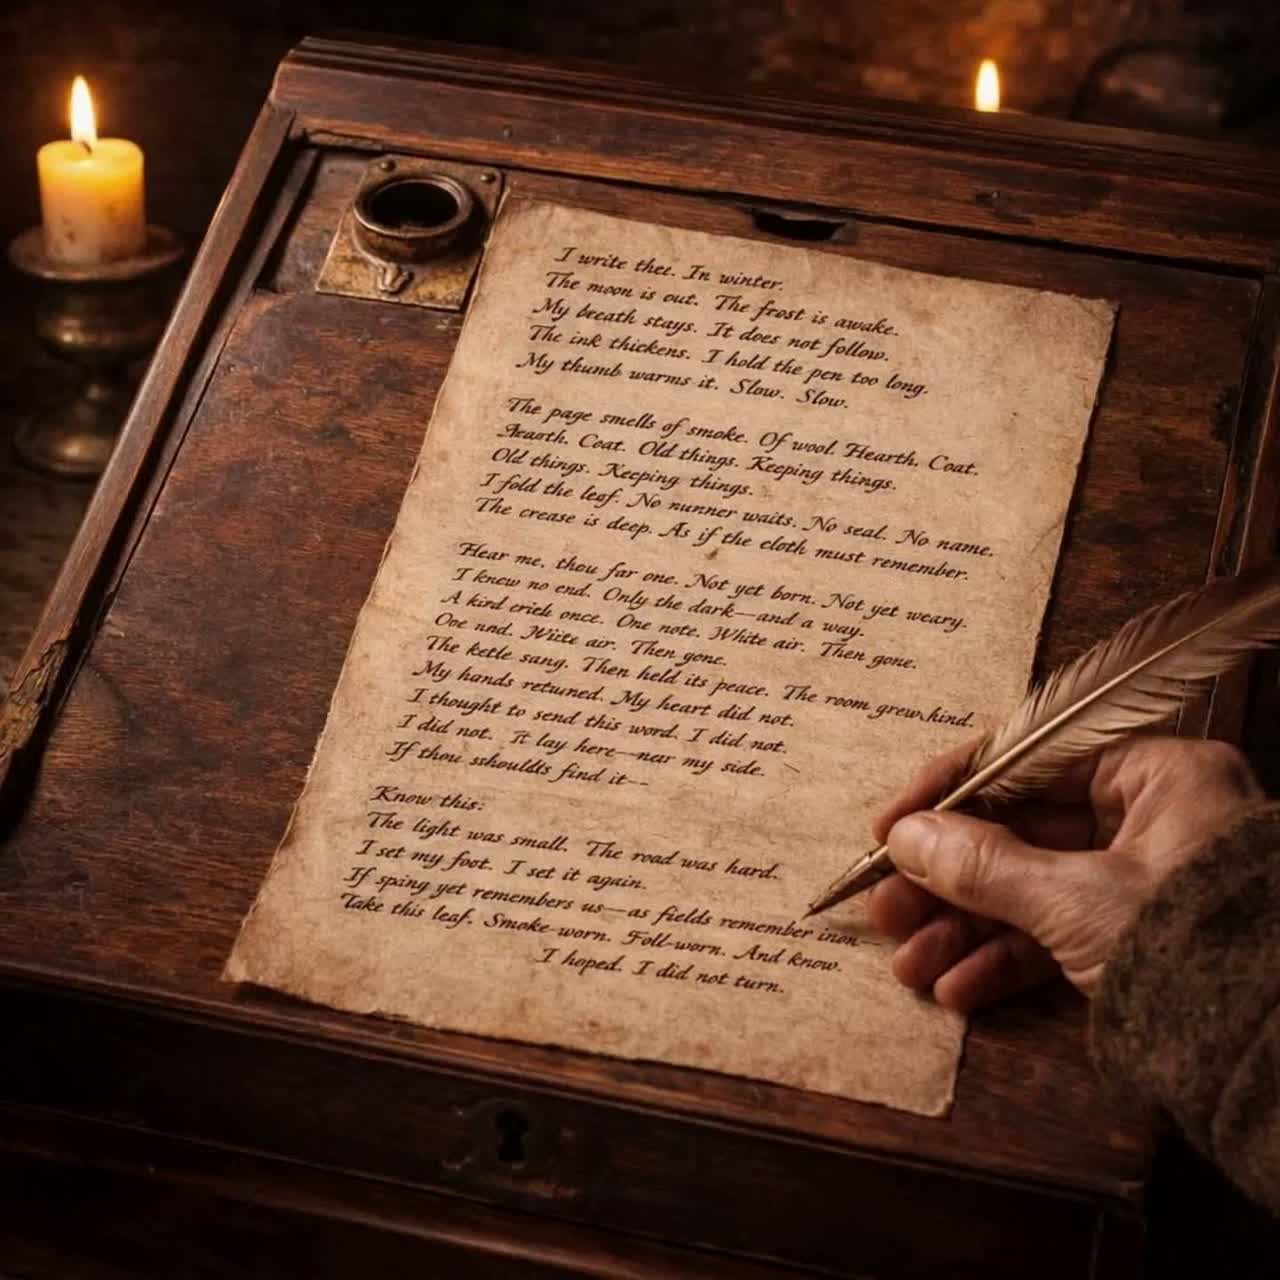 I write thee. In winter.
The moon is out. The frost is awake.
My breath stays. It does not follow.
The ink thickens. I hold the pen too long.
My thumb warms it. Slow. Slow.
The page smells of smoke. Of wool. Hearth. Coat.
Coat. Old things. Keeping things.
Old things. Keeping things.
I fold the leaf. No nunner waits. No seal. No name.
The crease is deep. As if the cloth must remember.
Hear me, thou far one. Not yet born. Not yet weary.
I knew no end. Only the dark—and a way.
A kird crieh once. One note. White air. Then gone.
Ooe nnd. Wiite air. Then gone.
The ketle sang. Then held its peace. The room grew kind.
My hands retuned. My heart did not.
I thought to send this word. I did not.
I did not. It lay here—near my side.
If thou sshouldts find it--
Know this:
The light was small. The road was hard.
I set my foot. I set it again.
If sping yet remembers us—as fields remember inon—
Take this leaf. Smoke-worn. Foll-worn. And know.
I hoped. I did not turn.